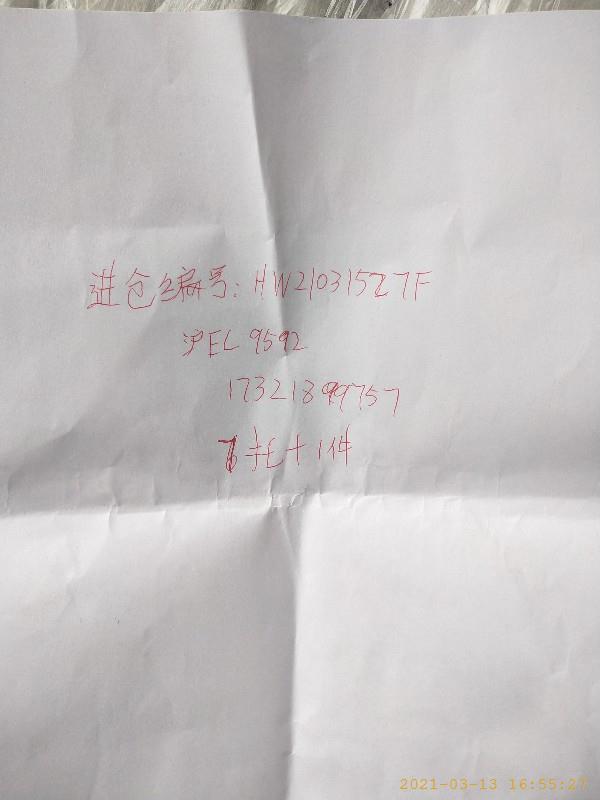 进仓编号: HW21031527F
沪EL 9592
17321899757
托+1件
2021-03-13 16:55:27